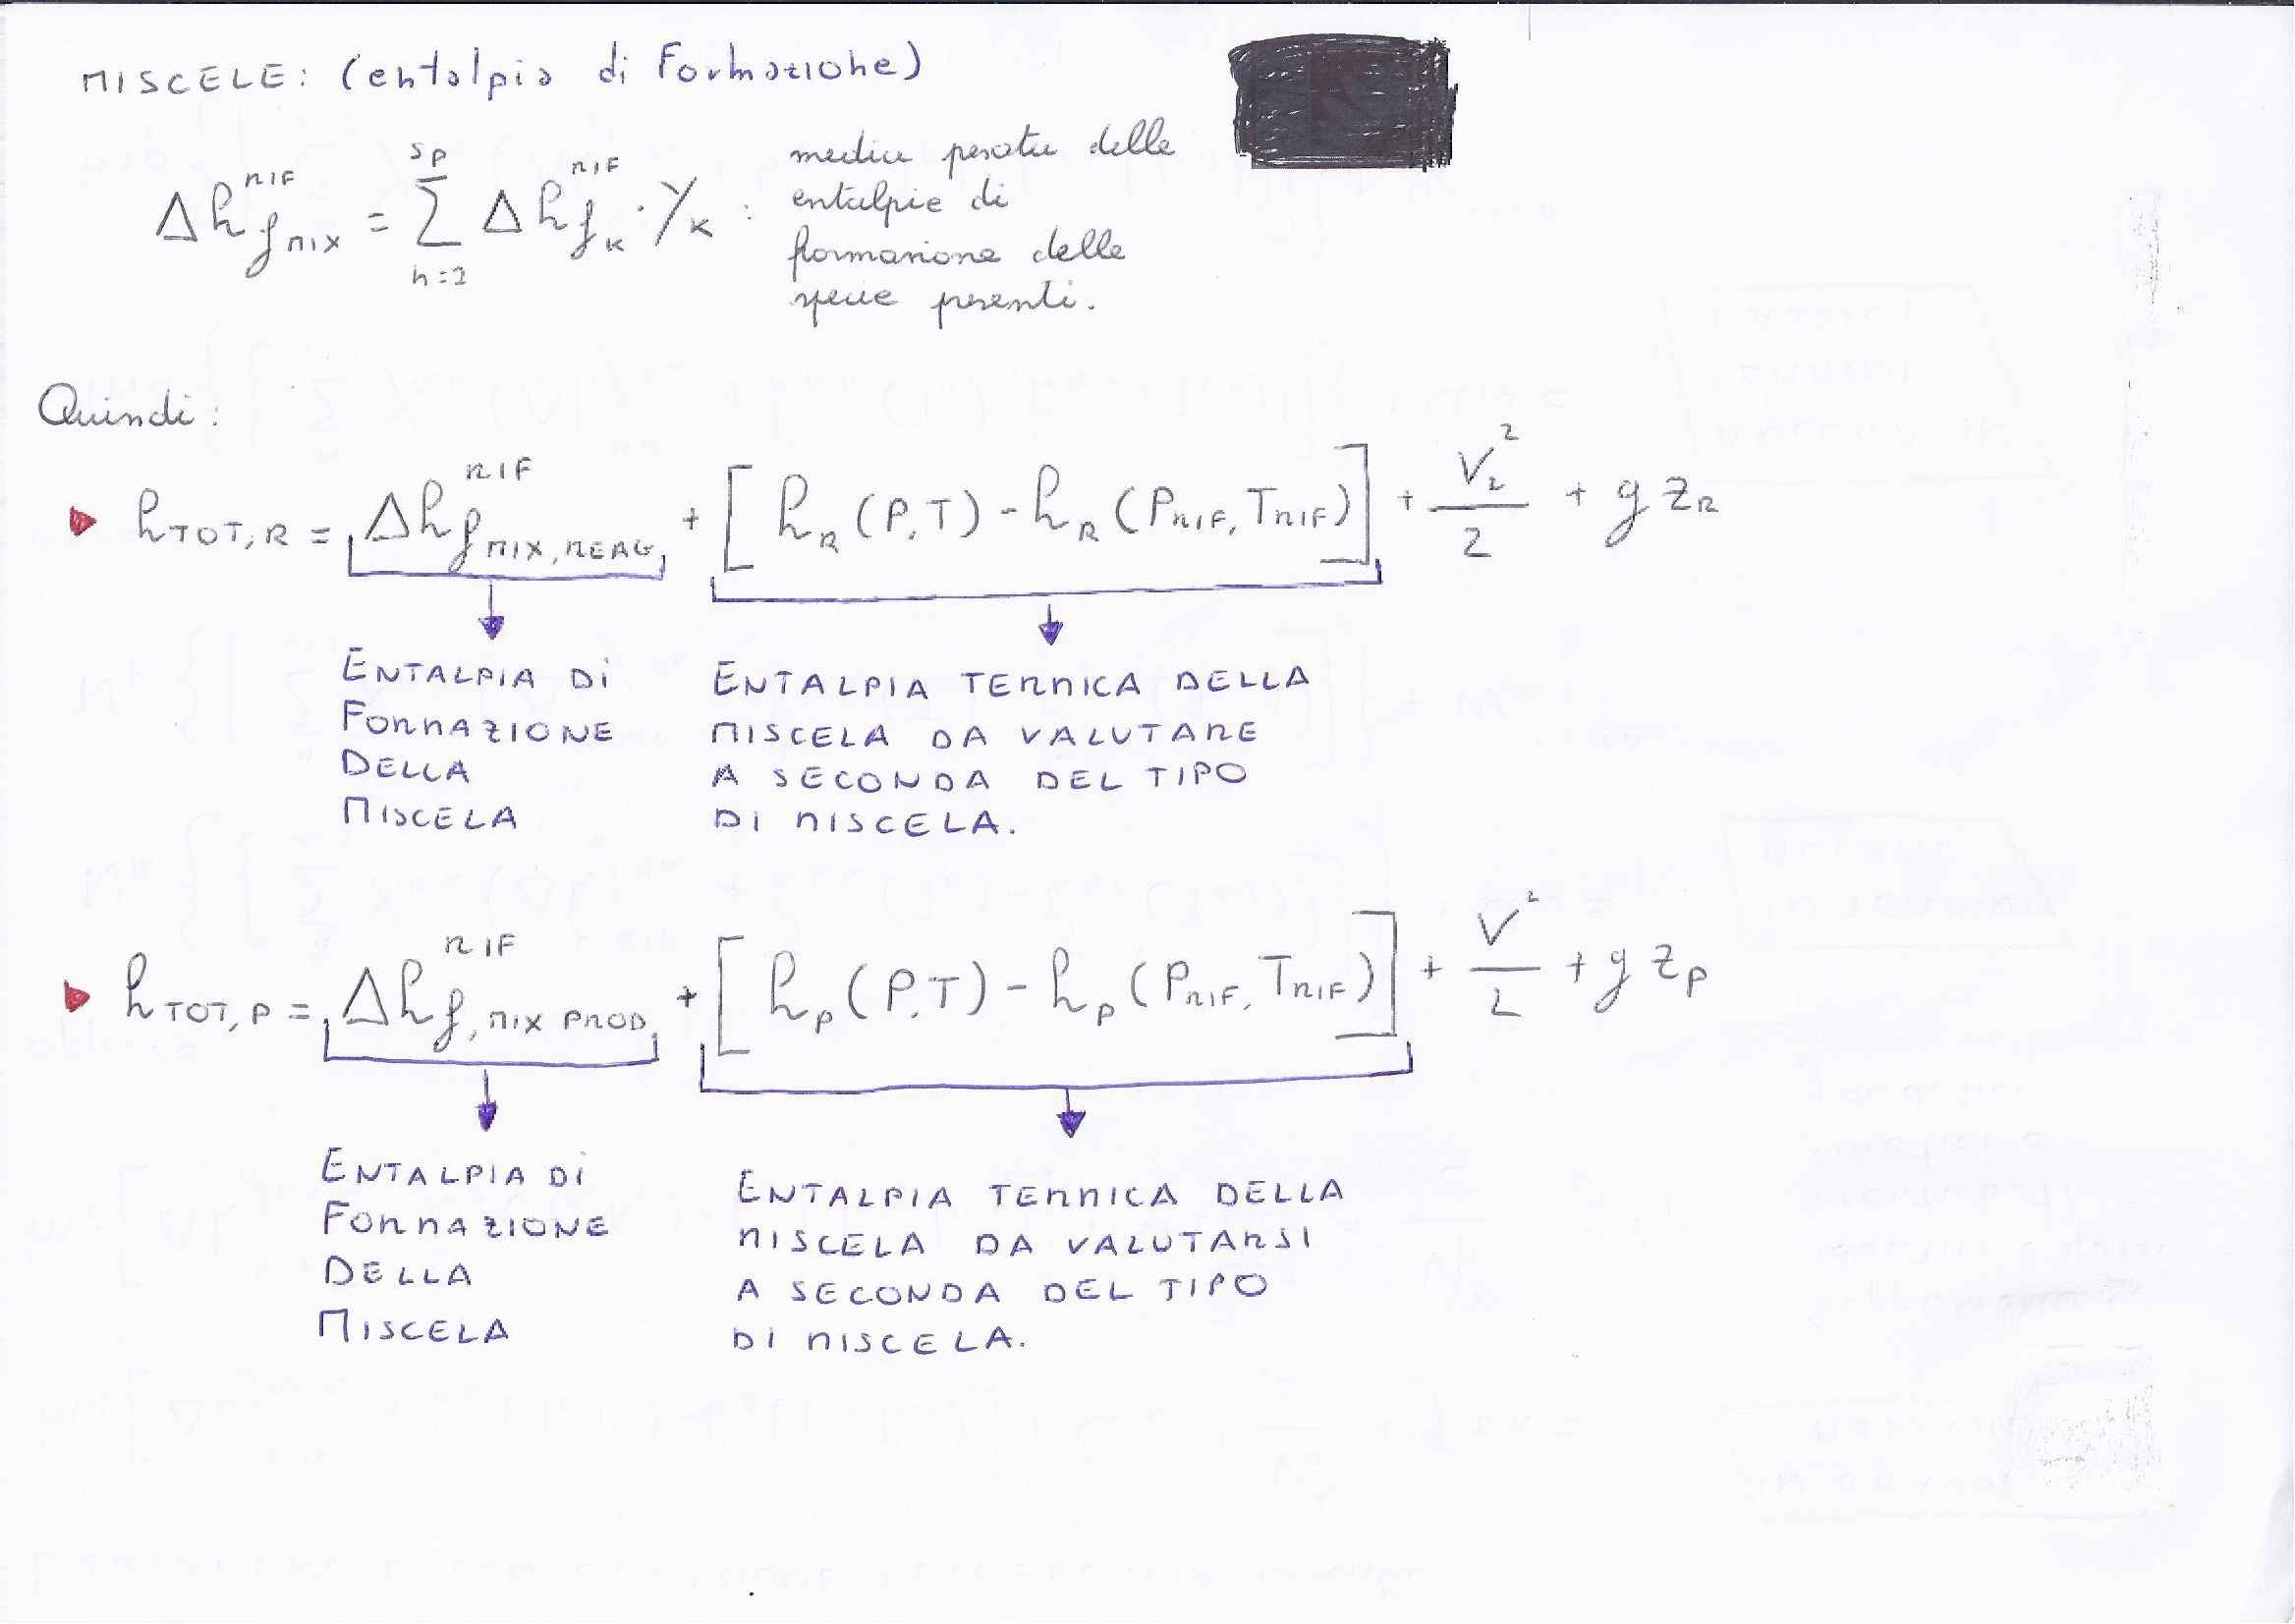 MISCELE: (entalpia di Formazione)
Δh_f MIX^RIF = Σ_{h=1}^{SP} Δh_f K^RIF · Y_K : media pesata delle
entalpie di
formazione delle
specie presenti.
Quindi:
h_TOT,R = Δh_f MIX,REAG^RIF + [h_R (P,T) - h_R (P_RIF, T_RIF)] + V_2^2/2 + g z_R
ENTALPIA DI
FORMAZIONE
DELLA
MISCELA
ENTALPIA TERMICA DELLA
MISCELA DA VALUTARE
A SECONDA DEL TIPO
DI MISCELA.
h_TOT,P = Δh_f, MIX PROD^RIF + [h_P (P,T) - h_P (P_RIF, T_RIF)] + V^2/2 + g z_P
ENTALPIA DI
FORMAZIONE
DELLA
MISCELA
ENTALPIA TERMICA DELLA
MISCELA DA VALUTARSI
A SECONDA DEL TIPO
DI MISCELA.